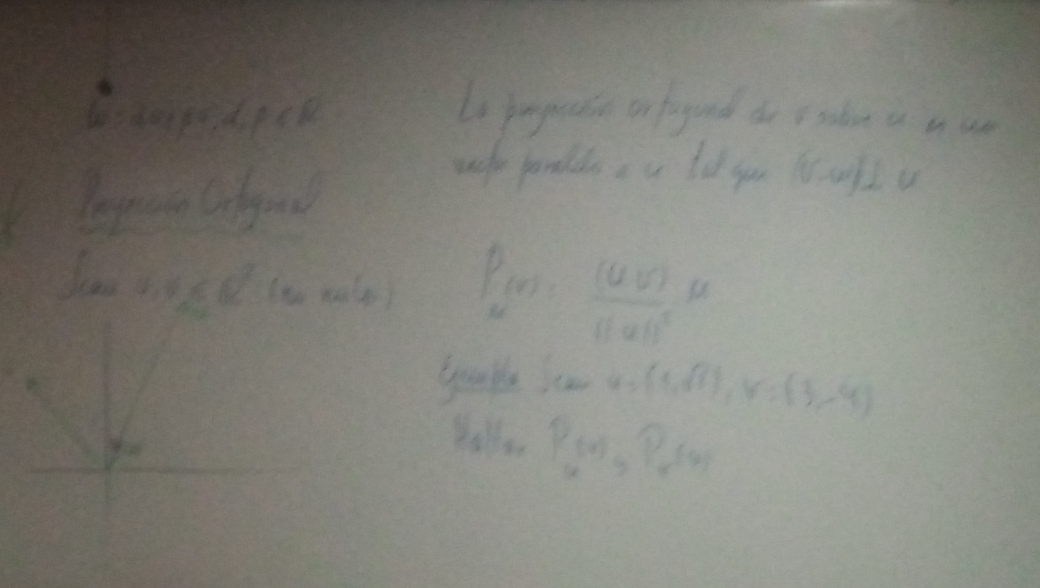 w = αu + βv, α, β ∈ R
Proyección Ortogonal
Sean u, v ∈ R² (no nulos)
La proyección ortogonal de v sobre u es un
vector paralelo a u tal que (v-w) ⊥ u
P_u(v) = (u·v) / ||u||² u
Ejemplo Sean u = (1, ), v = (3, -4)
Hallar P_u(v), P_v(u)